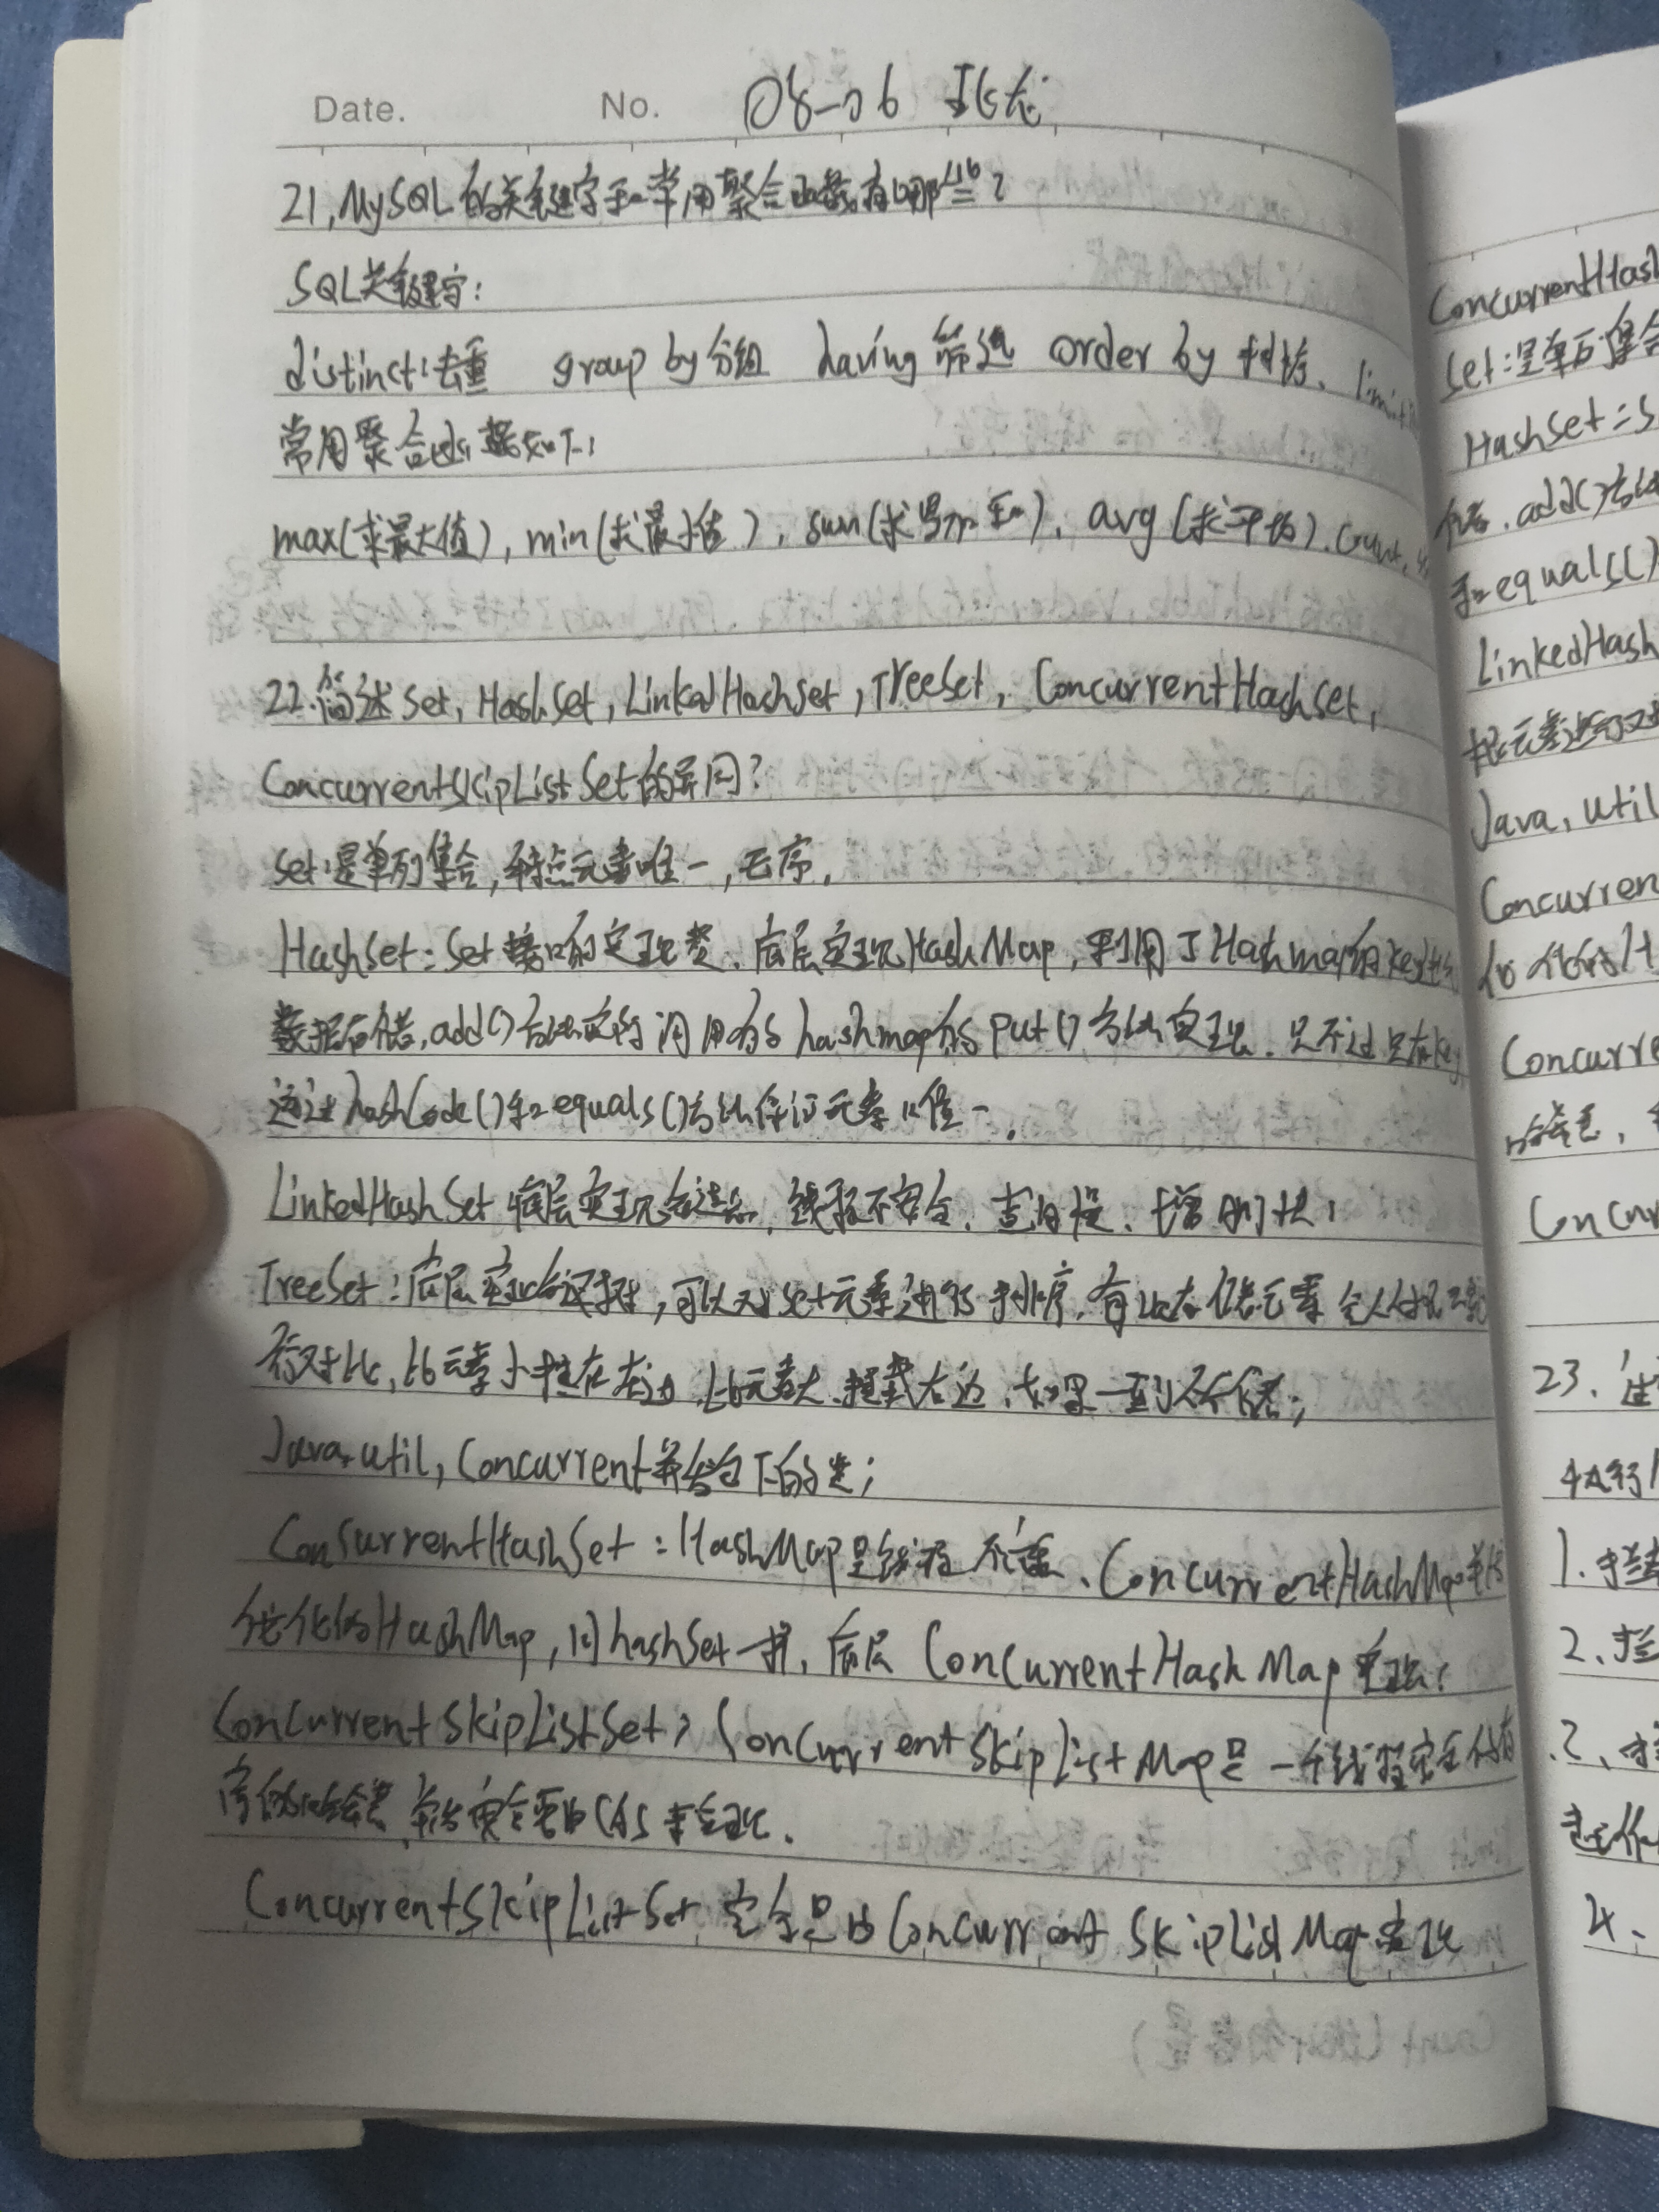 Date. No. 08-06
21,MySQL的关键字和常用聚合函数有哪些?
SQL关键字:
distinct:去重 group by 分组 having 筛选 order by 排序、limit
常用聚合函数如下:
max(求最大值),min(求最小值),sum(求累加和),avg(求平均).count,
22.简述Set,HashSet,LinkedHashSet,TreeSet,ConcurrentHashSet,
ConcurrentSkipListSet的异同?
Set:是单列集合,特点元素唯一,无序,
HashSet:Set接口的实现类、底层实现HashMap,利用了Hashmap的key
数据存储,add()方法实际调用的是hashmap的put()方法实现.只不过只有key
通过hashCode()和equals()方法保证元素唯一.
LinkedHashSet 底层实现 链表,线程不安全、查询慢、增删快;
TreeSet:底层实现 ,可以对set元素进行排序,有 存储元素会
行对比,比元素小挂在左边,比元素大,挂载右边,如果一致则不存储;
Java.util,Concurrent并发包下的类;
ConsurrentHashSet:HashMap是线程不 、ConcurrentHashMap
优化的HashMap,同hashSet一样,底层ConcurrentHashMap实现;
ConcurrentSkipListSet:ConcurrentSkipListMap是一个线程安全的有
序的 ,并发安全要由CAS来实现.
ConcurrentSkipListSet 完全是由ConcurrentSkipListMap实现
ConcurrentHash
Set:是单列集合
HashSet:S
存储,add()方法
和equals()
LinkedHash
Java,util
Concurren
Concurre
Concur
23、
1.
2、
4、